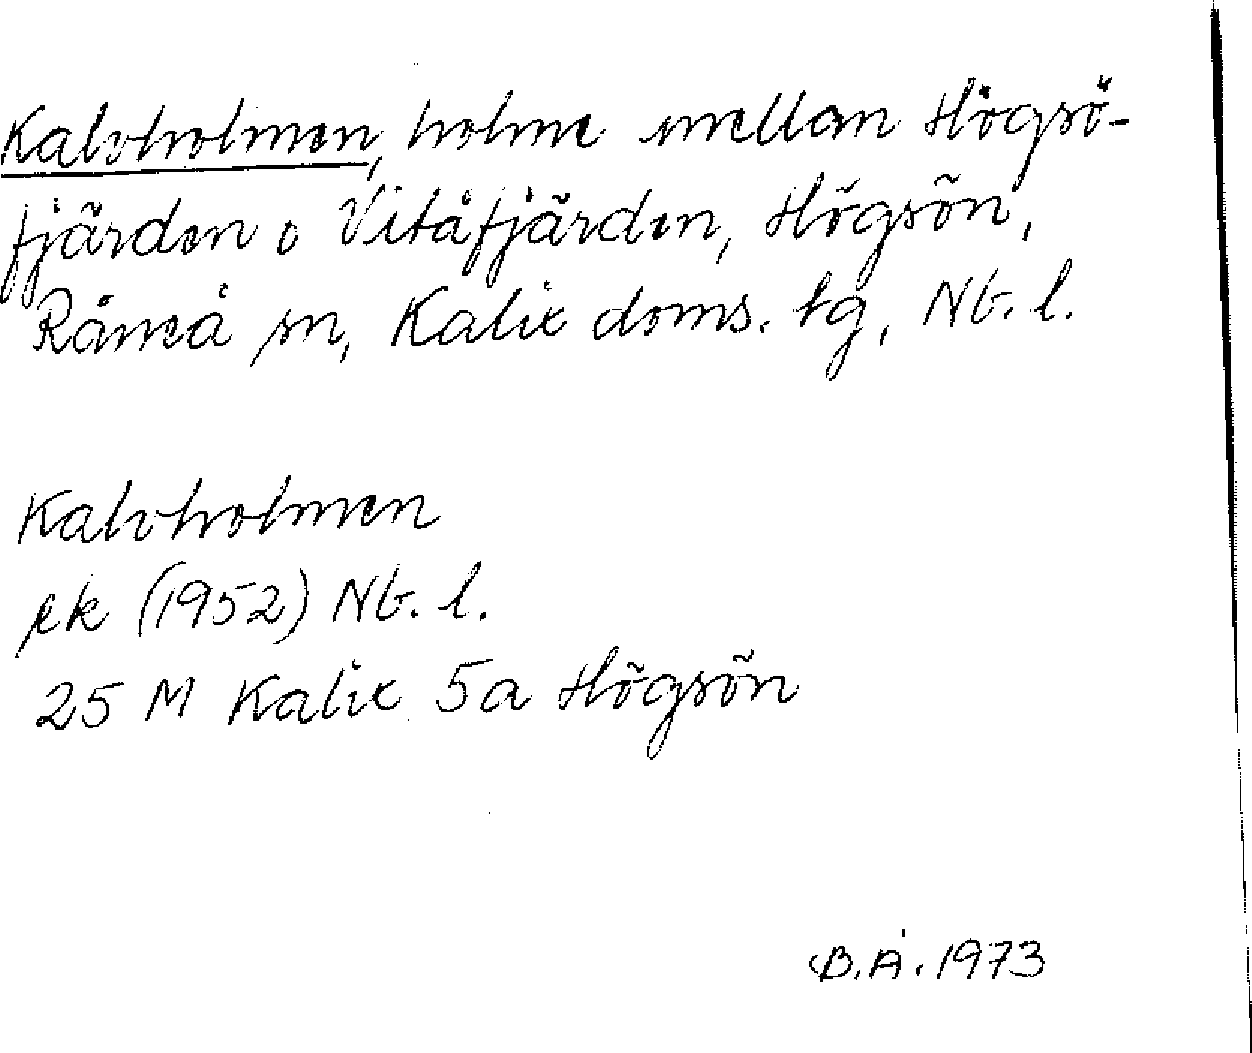 Kalvholmen, holme mellan Högsö-
fjärden o Vitåfjärden, Högsön,
Råneå sn, Kalix doms. tg, Nb. l.
Kalvholmen
ek (1952) Nb. l.
25 M Kalix 5a Högsön
B.Å. 1973